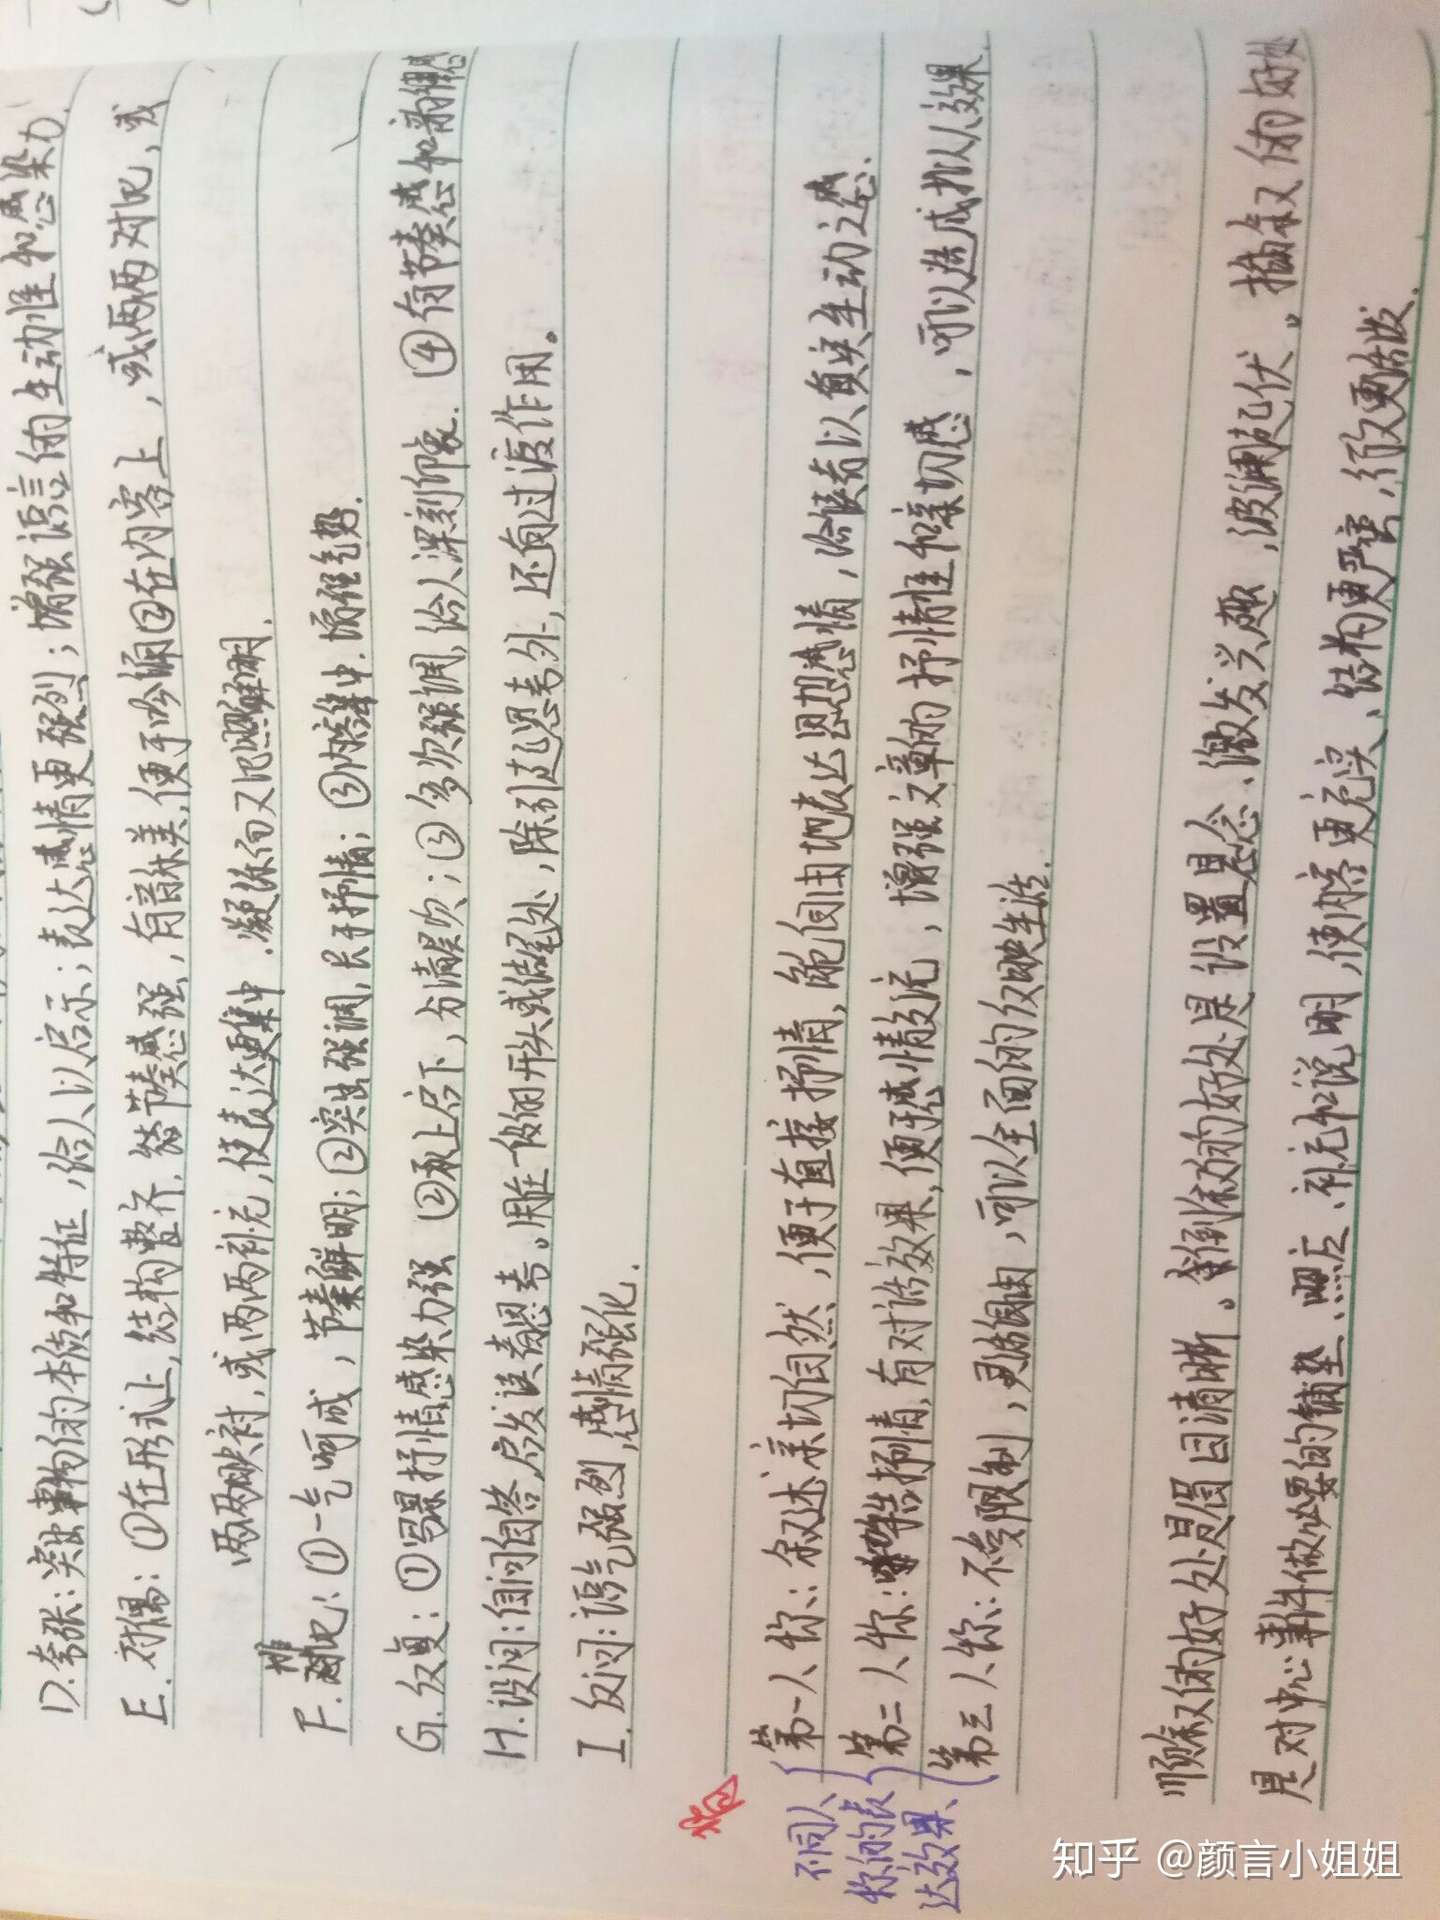 D.夸张：突出事物的本质和特征，给人以启示；表达感情更强烈；增强语言的生动性和感染力
E.对偶：①在形式上，结构整齐，节奏感强，有韵味美，便于吟诵②在内容上，或两两对比，或
两两映衬，或两两补充，使表达更集中.凝练而又鲜明.
F.排比：①一气呵成，节奏鲜明；②突出强调，长于抒情；③内容集中.增强气势.
G.反复：①写景抒情感染力强 ②承上启下，分清层次；③多次强调，给人深刻印象. ④有节奏感和韵律感
H.设问：自问自答启发读者思考。用在一段的开头或结尾处，除引起思考外，还有过渡作用。
I.反问：语气强烈，感情强化.
不同人称的表达效果、
第一人称：叙述亲切自然，便于直接抒情，能自由地表达思想感情，给读者以真实生动之感.
第二人称：抒情，有对话效果，便于感情交流，增强文章的抒情性和亲切感，可以造成拟人效果.
第三人称：不受限制，灵活自由，可以全面的反映生活.
顺叙的好处是眉目清晰。倒叙的好处是设置悬念、激发兴趣，波澜起伏。插叙的好处
是对中心事件做必要的铺垫、照应、补充和说明，使内容更充实、结构更严密，行文更活泼.
知乎 @颜言小姐姐